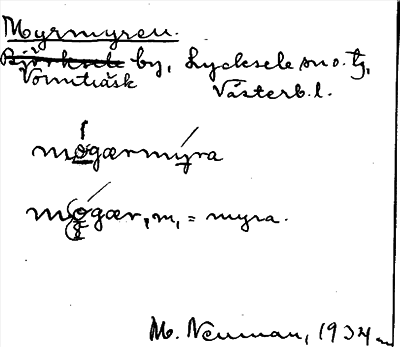 Myrmyren.
Björksele by, Lycksele sn o. tg,
Vormträsk Västerb. l.
mógærmýra
mógær, m, = myra.
M. Neuman, 1934